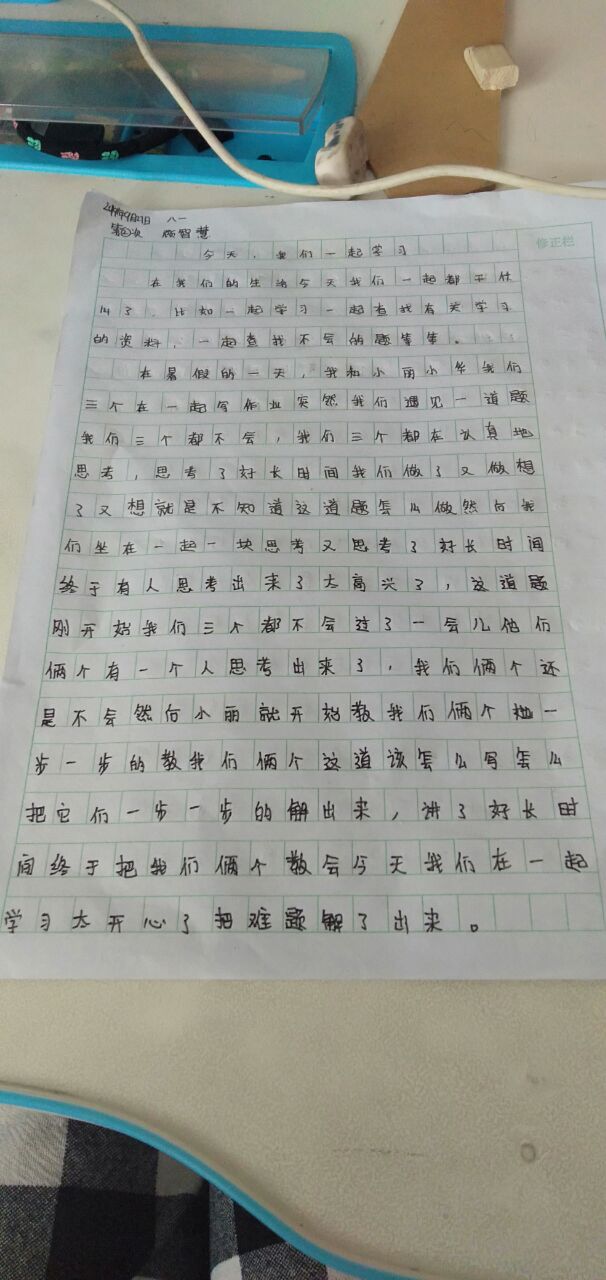 24年9月27日 八一
第②次 顾智慧
修正栏
今天,我们一起学习
在我们的生活今天我们一起都干什
么了,比如一起学习一起查找有关学习
的资料,一起查找不会的题等等。
在暑假的一天,我和小丽小华我们
三个在一起写作业突然我们遇见一道题
我们三个都不会,我们三个都在认真地
思考,思考了好长时间我们做了又做想
了又想就是不知道这道题怎么做然后我
们坐在一起一块思考又思考了好长时间
终于有人思考出来了太高兴了,这道题
刚开始我们三个都不会过了一会儿他们
俩个有一个人思考出来了,我们俩个还
是不会然后小丽就开始教我们俩个她一
步一步的教我们俩个这道该怎么写怎么
把它们一步一步的解出来,讲了好长时
间终于把我们俩个教会今天我们在一起
学习太开心了把难题解了出来。